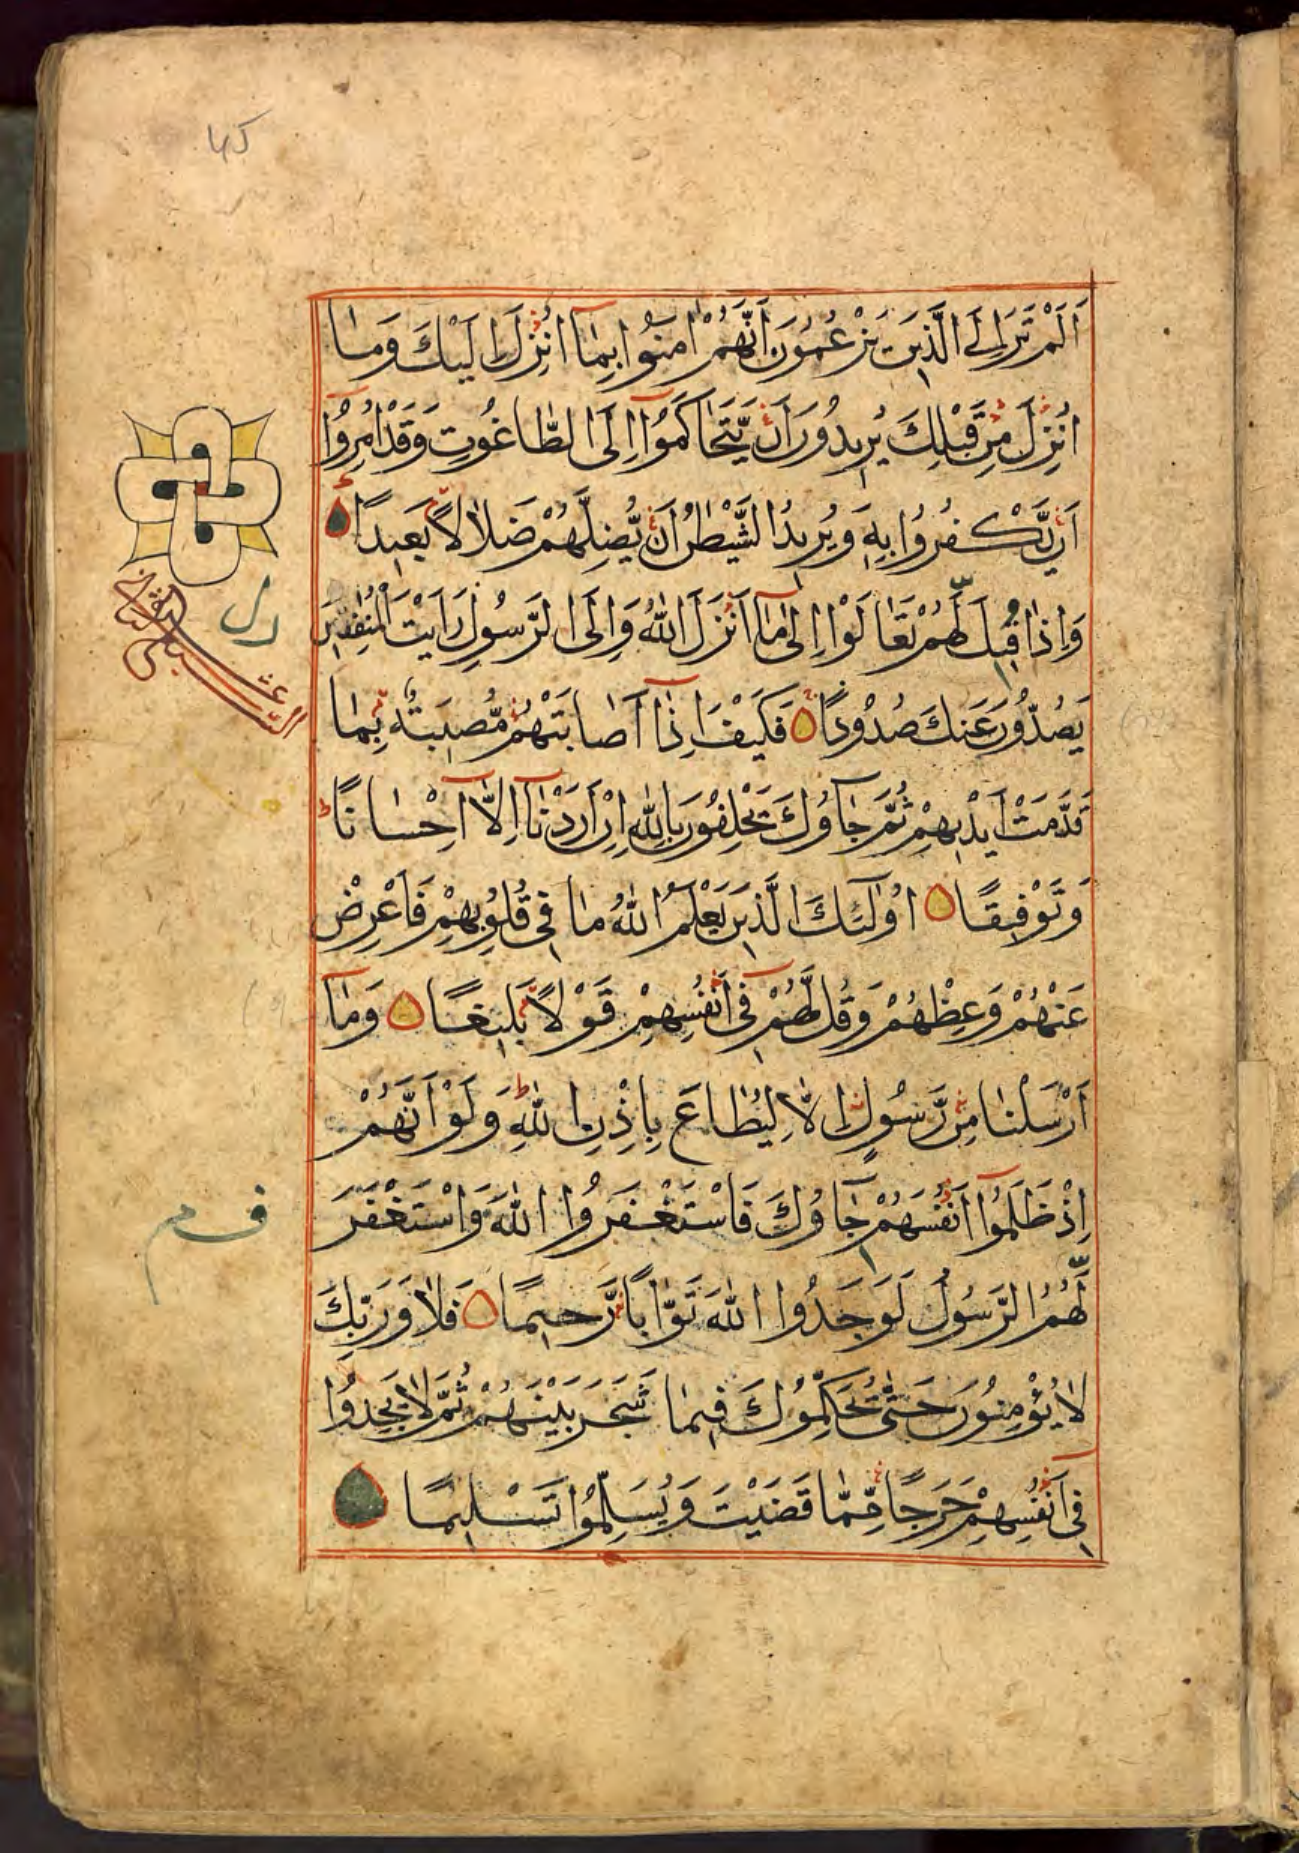 اَلَمْ تَرَ اِلَى الَّذِينَ يَزْعُمُونَ اَنَّهُمْ اٰمَنُوا بِمَآ اُنْزِلَ اِلَيْكَ وَمَا
اُنْزِلَ مِنْ قَبْلِكَ يُرِيدُونَ اَنْ يَّتَحَاكَمُوٓا اِلَى الطَّاغُوتِ وَقَدْ اُمِرُوٓا
اَنْ يَّكْفُرُوا بِهٖ وَيُرِيدُ الشَّيْطٰنُ اَنْ يُّضِلَّهُمْ ضَلٰلًا بَعِيدًا
وَاِذَا قِيلَ لَهُمْ تَعَالَوْا اِلٰى مَآ اَنْزَلَ اللّٰهُ وَاِلَى الرَّسُولِ رَاَيْتَ الْمُنٰفِقِينَ
يَصُدُّونَ عَنْكَ صُدُودًا فَكَيْفَ اِذَآ اَصَابَتْهُمْ مُّصِيبَةٌ بِمَا
قَدَّمَتْ اَيْدِيهِمْ ثُمَّ جَآؤُكَ يَحْلِفُونَ بِاللّٰهِ اِنْ اَرَدْنَآ اِلَّآ اِحْسَانًا
وَتَوْفِيقًا اُولٰٓئِكَ الَّذِينَ يَعْلَمُ اللّٰهُ مَا فِى قُلُوبِهِمْ فَاَعْرِضْ
عَنْهُمْ وَعِظْهُمْ وَقُلْ لَّهُمْ فِىٓ اَنْفُسِهِمْ قَوْلًا بَلِيغًا وَمَآ
اَرْسَلْنَا مِنْ رَّسُولٍ اِلَّا لِيُطَاعَ بِاِذْنِ اللّٰهِ وَلَوْ اَنَّهُمْ
اِذْ ظَلَمُوٓا اَنْفُسَهُمْ جَآؤُكَ فَاسْتَغْفَرُوا اللّٰهَ وَاسْتَغْفَرَ
لَهُمُ الرَّسُولُ لَوَجَدُوا اللّٰهَ تَوَّابًا رَّحِيمًا فَلَا وَرَبِّكَ
لَا يُؤْمِنُونَ حَتّٰى يُحَكِّمُوكَ فِيمَا شَجَرَ بَيْنَهُمْ ثُمَّ لَا يَجِدُوا
فِىٓ اَنْفُسِهِمْ حَرَجًا مِّمَّا قَضَيْتَ وَيُسَلِّمُوا تَسْلِيمًا